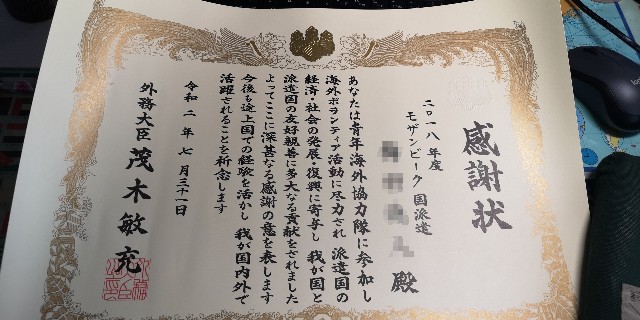 感謝状
二〇一八年度
モザンビーク国派遣
殿
あなたは青年海外協力隊に参加し
海外ボランティア活動に尽力され 派遣国の
経済・社会の発展・復興に寄与し 我が国と
派遣国の友好親善に多大なる貢献をされました
よってここに深甚なる感謝の意を表します
今後も途上国での経験を活かし 我が国内外で
活躍されることを祈念します
令和二年七月三十一日
外務大臣 茂木敏充